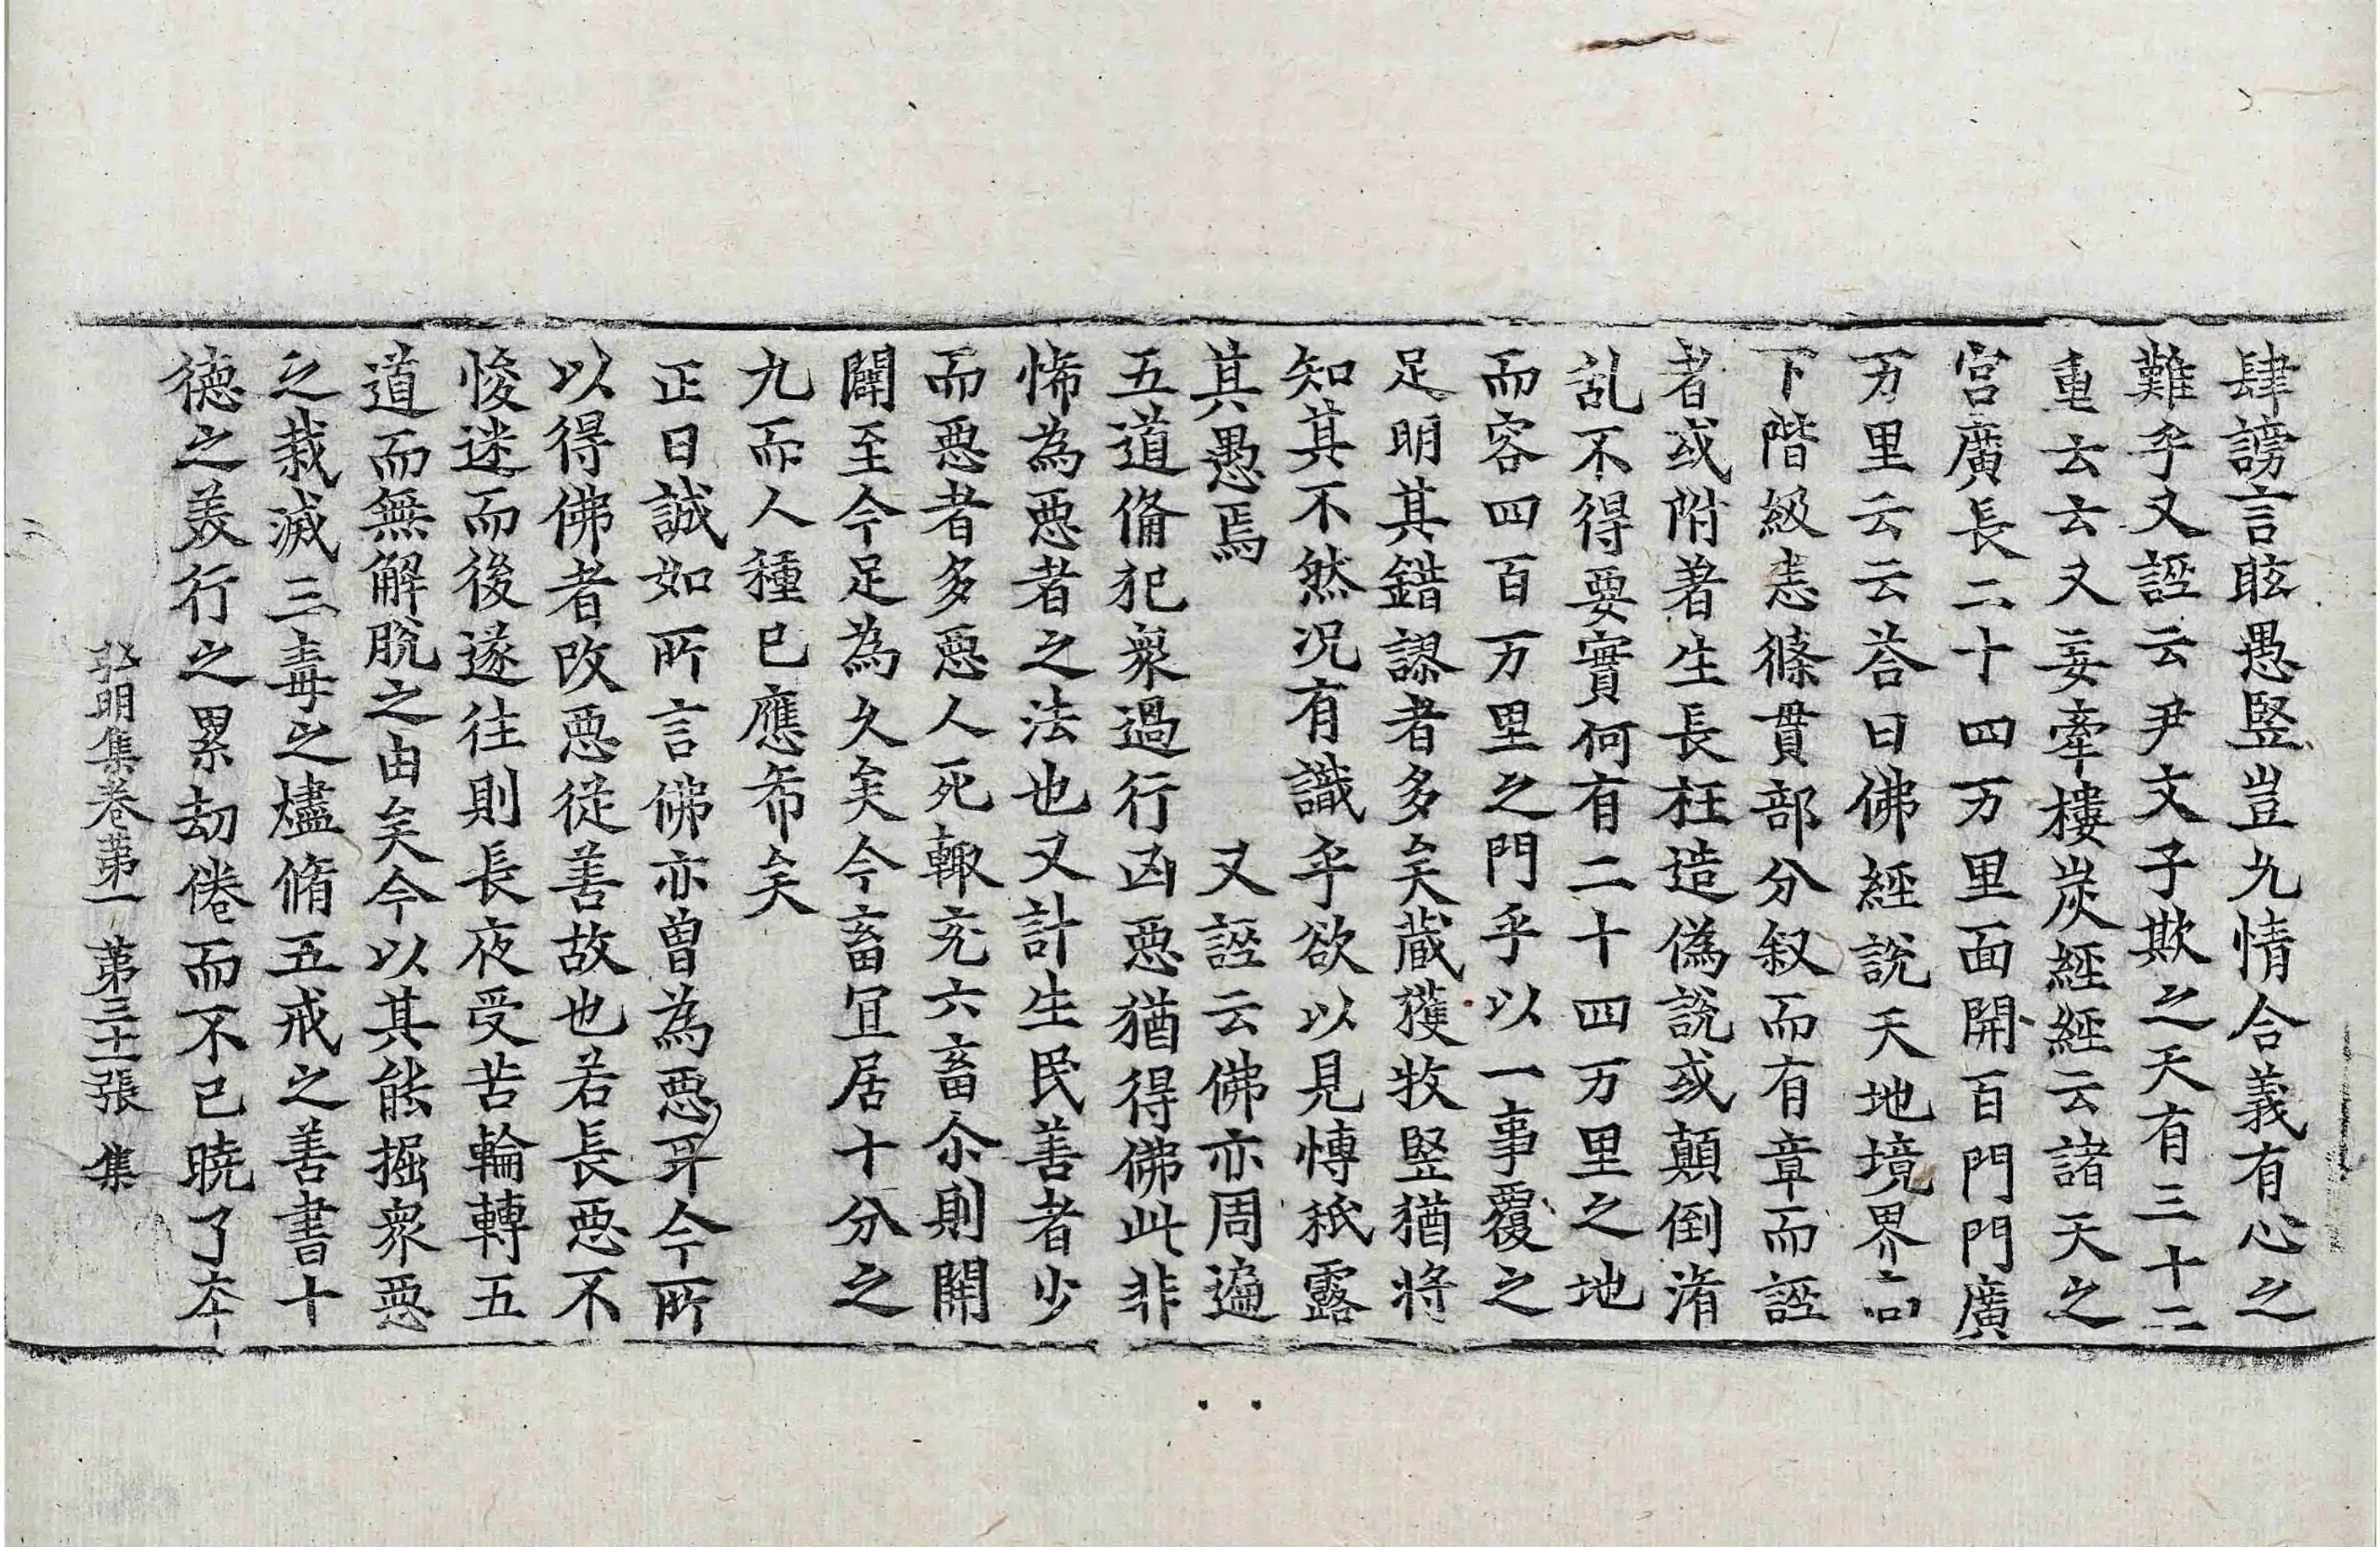 肆謗言眩愚竪豈九情合義有心之
難乎又誣云尹文子欺之天有三十二
重云云又妄牽樓炭經經云諸天之
宮廣長二十四万里面開百門門廣
万里云云荅曰佛經說天地境界高
下階級悉條貫部分叙而有章而誣
者或附著生長枉造偽說或顛倒淆
乱不得要實何有二十四万里之地
而容四百万里之門乎以一事覆之
足明其錯謬者多矣藏獲牧竪猶將
知其不然况有識乎欲以見愽秖露
其愚焉　又誣云佛亦周遍
五道俻犯衆過行凶惡猶得佛此非
怖為惡者之法也又計生民善者少
而惡者多惡人死輙充六畜尒則開
闢至今足為久矣今畜冝居十分之
九而人種已應希矣
正曰誠如所言佛亦曾為惡耳今所
以得佛者改惡從善故也若長惡不
悛迷而後遂往則長夜受苦輪轉五
道而無解脫之由矣今以其能掘衆惡
之栽滅三毒之燼脩五戒之善書十
德之羙行之累劫倦而不已曉了夲
弘明集卷第一　第三十二張　集